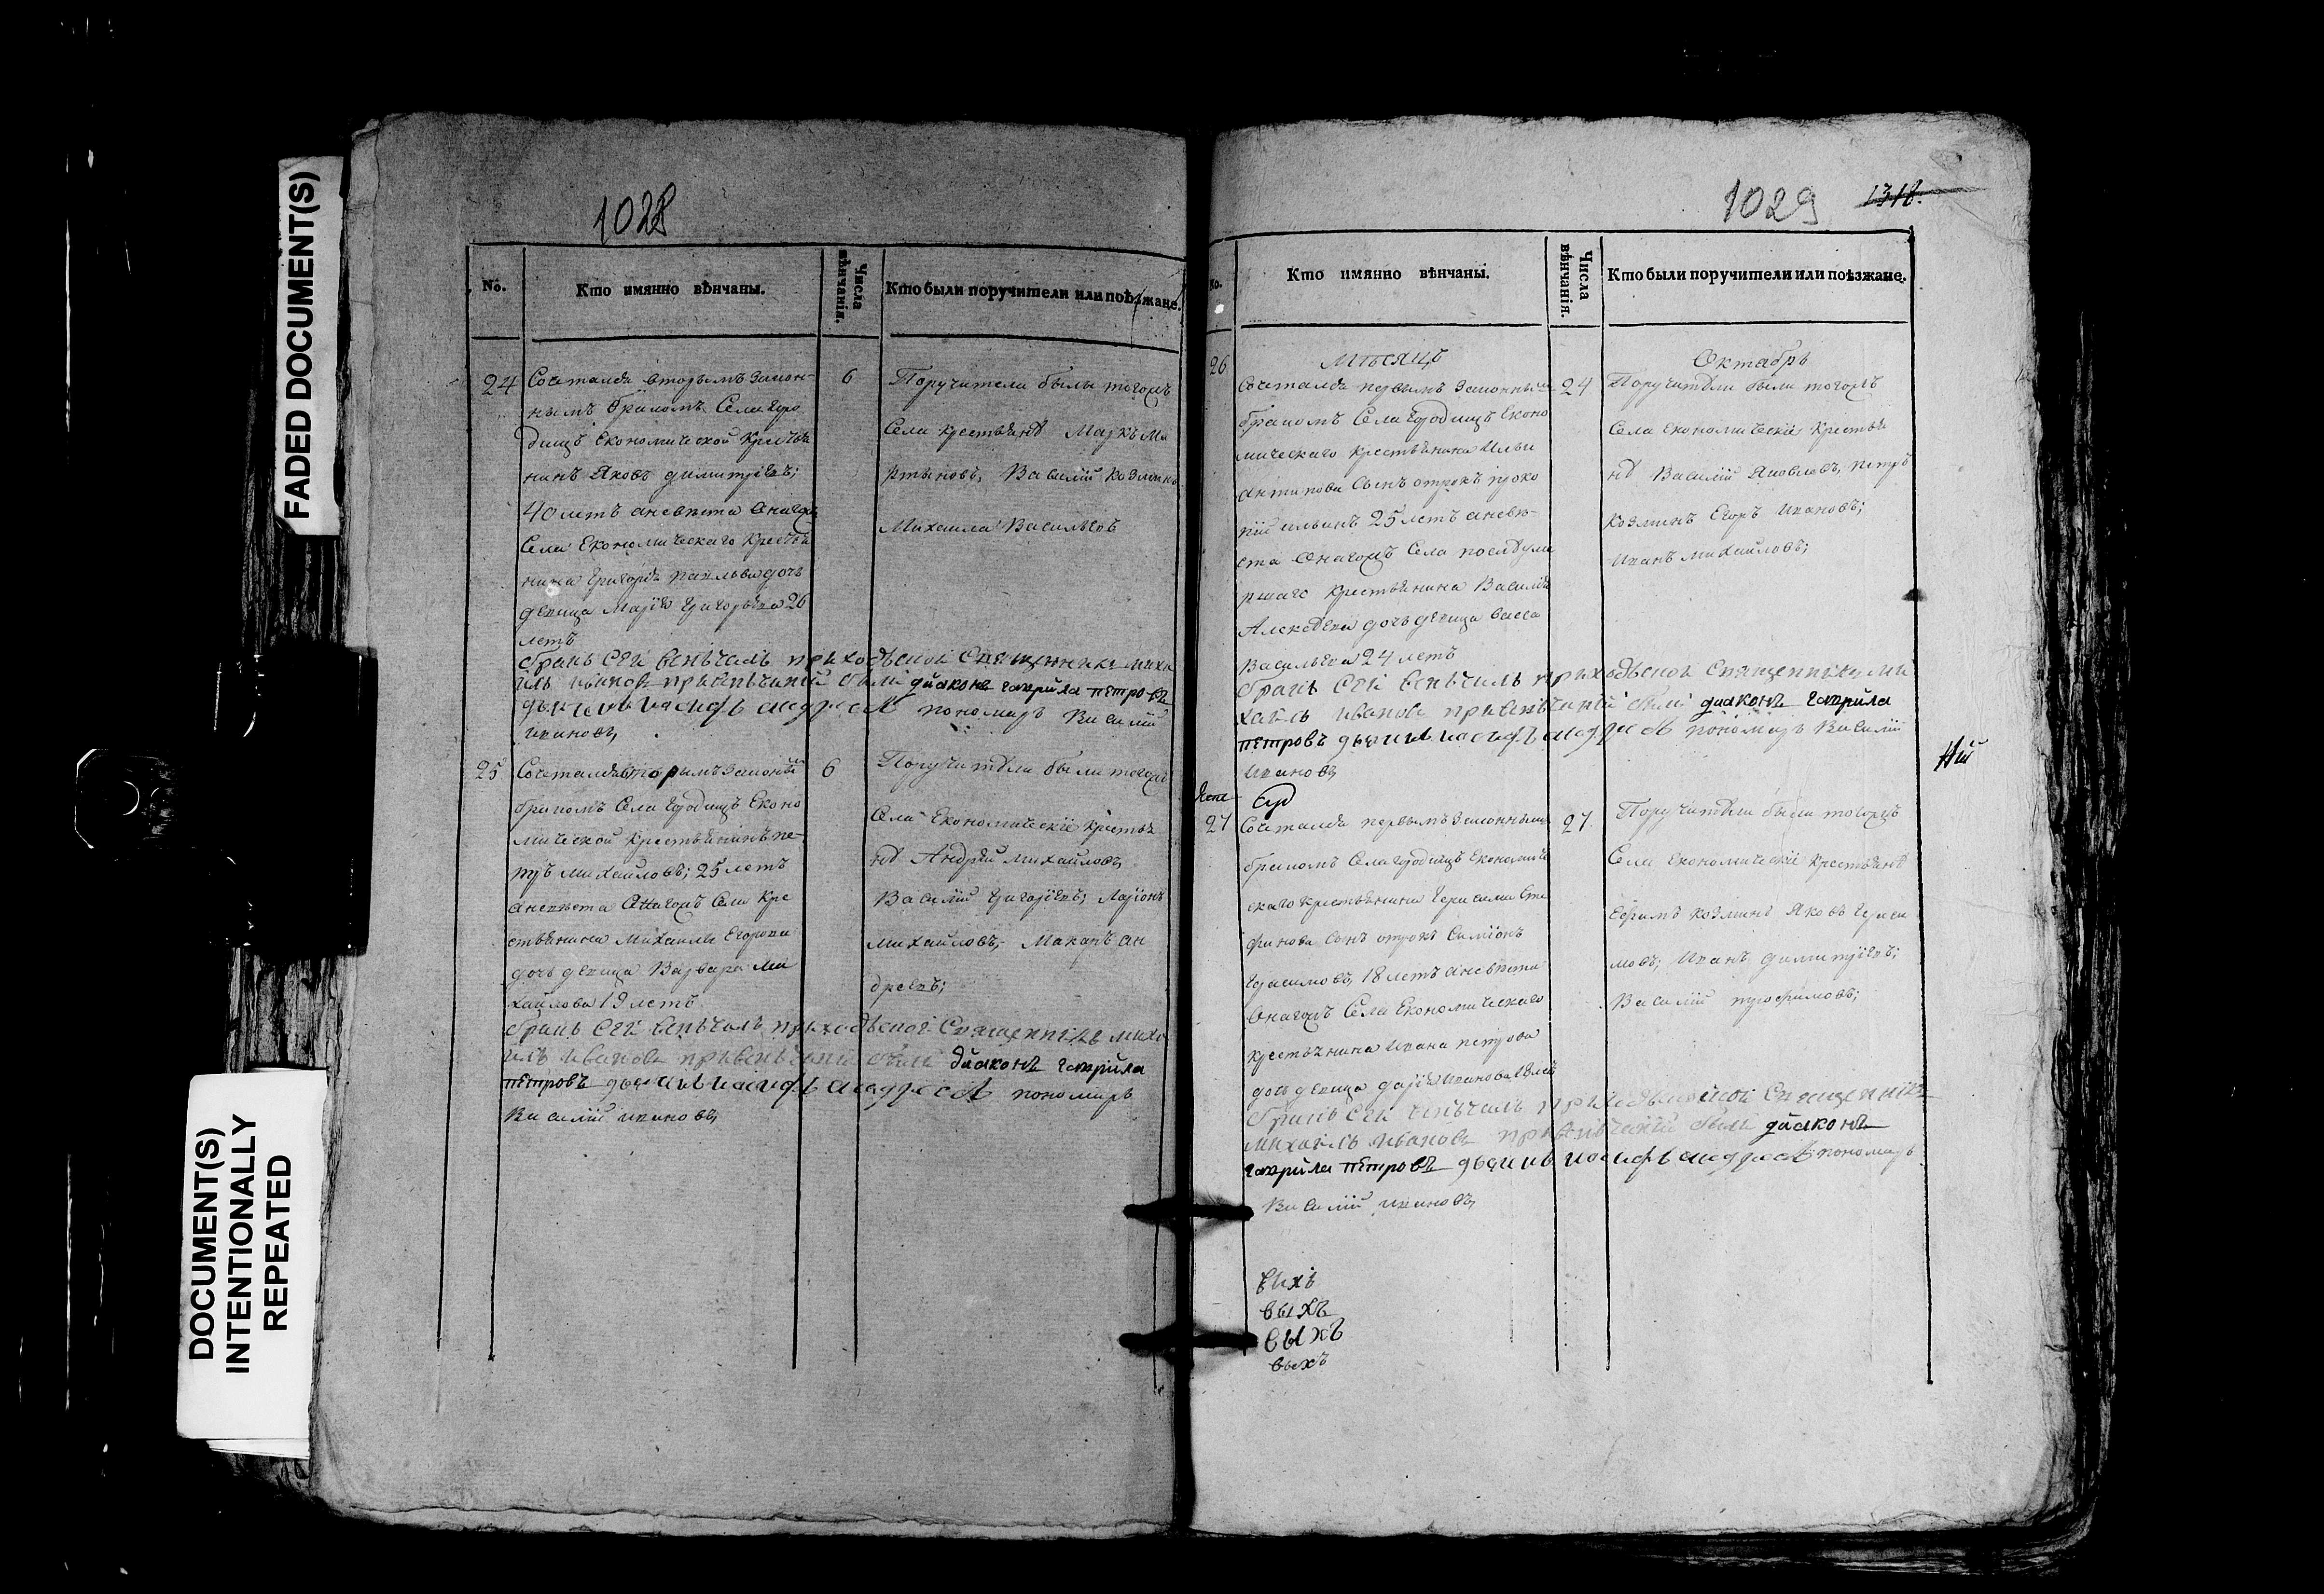 FADED DOCUMENT(S)
DOCUMENT(S)
INTENTIONALLY
REPEATED
1028
No.
Кто имянно вѣнчаны.
Числа вѣнчанія.
Кто были поручители или поѣзжане.
24
Сочетался вторымъ закон-
нымъ бракомъ Села Горо
дищъ Економической крестья
нинъ Яковъ димитріевъ;
40 летъ аневѣста Онагожъ
Села Економическаго крестья
нина Григорія павлова дочь
девица Марія Григорьева 26
летъ
6
Поручители были тогожъ
Села крестьянѣ Маркъ Ма
ртыновъ, Василій Козминъ
Михаила Васильевъ
бракъ сей венъчалъ приходъской Священникъ миха
илъ ивановъ привенъчаніи были диаконъ гаврила петровъ
дьячекъ иосифъ андреевъ пономарь Василій
ивановъ,
25
Сочетался вторымъ законны
бракомъ Села Городищъ Еконо
мической крестьянинъ пе-
тръ михайловъ; 25 летъ
аневѣста Онагожъ Села Кре
стьянина Михаилы Егорова
дочь девица Варвара Ми
хайлова 19 летъ
6
Поручители были тогожъ
Села Економическіе крестья
нѣ Андрей михайловъ,
Василій Григоріевъ; Ларіонъ
михайловъ,- Макаръ ан
дреевъ;
бракъ сей венъчалъ приходъской Священникъ миха
илъ ивановъ привенъчаніи были диаконъ гаврила
петровъ дьячекъ иосифъ андреевъ пономарь
Василій ивановъ,
1029
1318.
No.
Кто имянно вѣнчаны.
Числа вѣнчанія.
Кто были поручители или поѣзжане.
мѣсяцъ
Октябрь
26
Сочетался первымъ законнымъ
бракомъ Села Городищъ Еконо
мическаго крестьянина Ильи
антипова Сынъ отрокъ проко
пій ильинъ 25 летъ аневѣ-
ста Онагожъ Села послѣ уме
ршаго крестьянина Василія
Алексѣева дочь девица Васса
Васильева 24 летъ
24
Поручители были тогожъ
Села Економическіе крестья
нѣ Василій Яковлевъ, петръ
Козминъ Егоръ ивановъ;
иванъ михайловъ;
бракъ сей венъчалъ приходъской Священникъ ми
хаилъ ивановъ привенъчаніи были диаконъ гаврила
петровъ дьячекъ иосифъ андреевъ пономарь Василій
ивановъ
27
Сочетался первымъ законнымъ
бракомъ Села Городищъ Економиче
скаго крестьянина Герасима Сте
фанова Сынъ отрокъ Симіонъ
Герасимовъ, 18 летъ аневѣста
Онагожъ Села Економическаго
крестьянина ивана петрова
дочь девица дарія иванова
27.
Поручители были тогожъ
Села Економическіе крестьянѣ
Ефимъ Козминъ Яковъ Гераси
мовъ; иванъ димитріевъ;
Василій трофимовъ;
бракъ сей венъчалъ приходъской Священникъ
михаилъ ивановъ привенъчаніи были диаконъ
гаврила петровъ дьячекъ иосифъ андреевъ пономарь
Василій ивановъ,
выхъ
выхъ
выхъ
выхъ